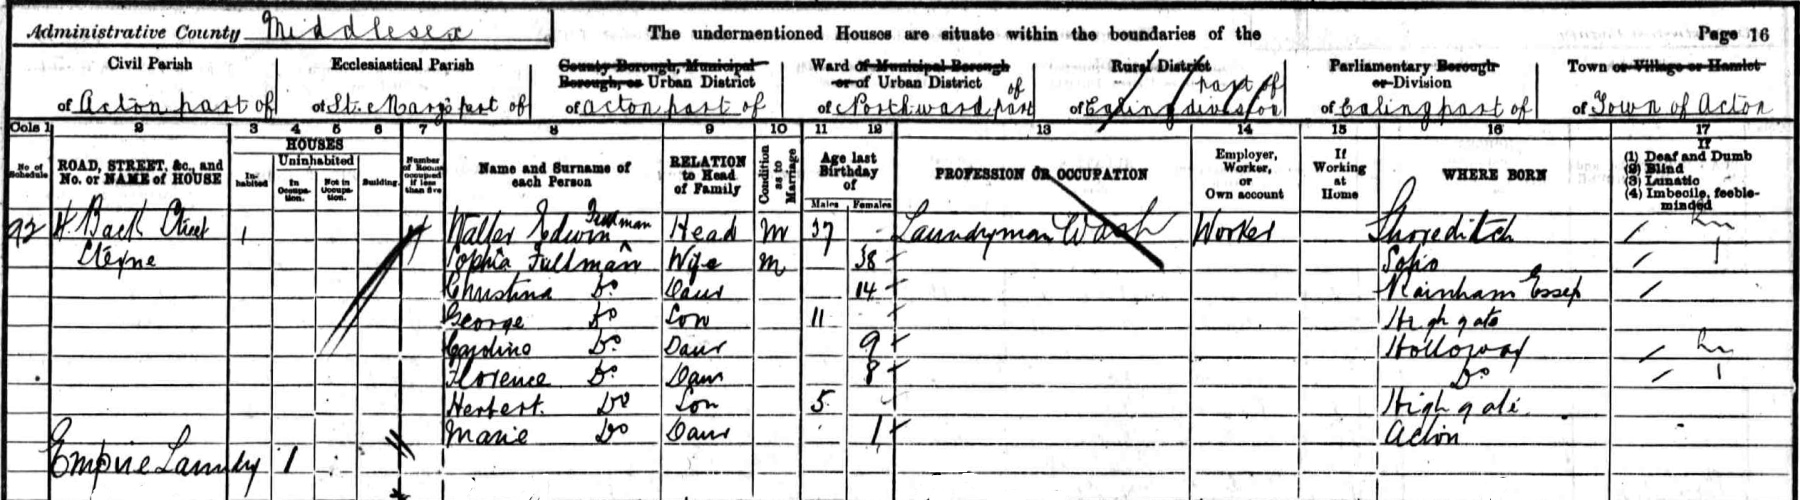 Administrative County Middlesex The undermentioned Houses are situate within the boundaries of the Page 16
Civil Parish Ecclesiastical Parish County Borough, Municipal Borough, or Urban District Ward of Municipal Borough or of Urban District Rural District Parliamentary Borough or Division Town or Village or Hamlet
of Acton part of of St. Mary's part of of Acton part of of North ward part of of Ealing division part of of Ealing part of of Town of Acton
Cols 1 2 3 4 5 6 7 8 9 10 11 12 13 14 15 16 17
No. of Schedule ROAD, STREET, &c., and No. or NAME of HOUSE HOUSES Inhabited Uninhabited In Occupation. Not in Occupation. Building. Number of Rooms occupied if less than five Name and Surname of each Person RELATION to Head of Family Condition as to Marriage Age last Birthday of Males Females PROFESSION OR OCCUPATION Employer, Worker, or Own account If Working at Home WHERE BORN If (1) Deaf and Dumb (2) Blind (3) Lunatic (4) Imbecile, feeble-minded
92 4 Back Street 1 4 Walter Edwin Fullman Head M 37 Laundryman Wash Worker Shoreditch
Steyne Sophia Fullman Wife M 38 Soho
Christina Do Daur 14 Rainham Essex
George Do Son 11 Highgate
Caroline Do Daur 9 Holloway
Florence Do Daur 8 Do
Herbert. Do Son 5 Highgate
Marie Do Daur 1 Acton
Empire Laundry 1